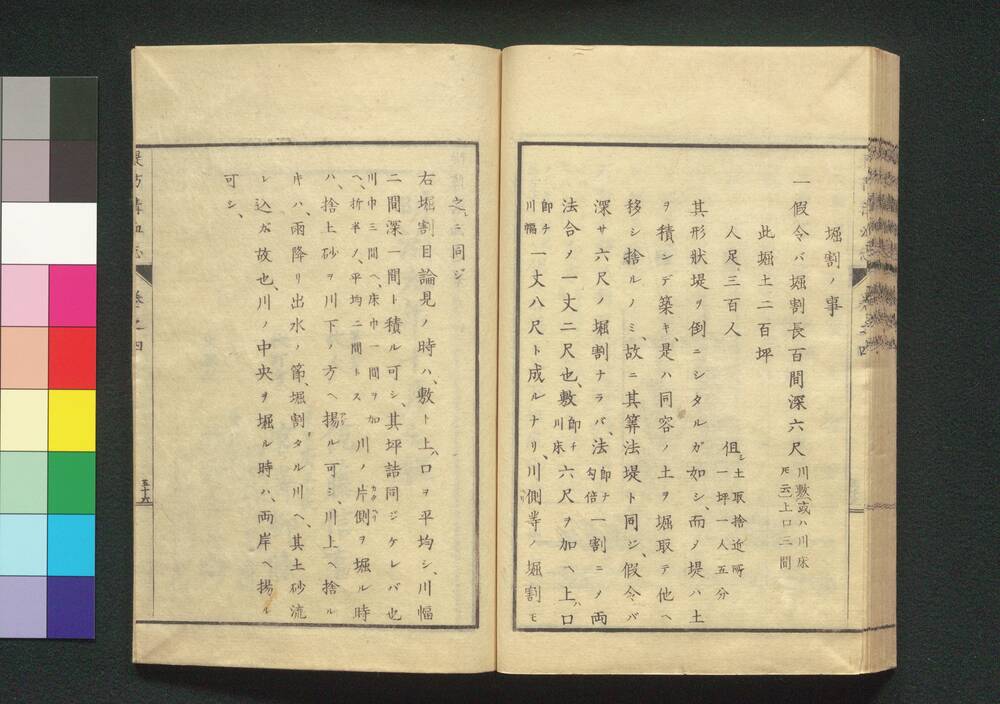 堀割ノ事
一假令バ堀割長百間深六尺川敷或ハ川床
トモ云上口三間
此堀土二百坪
人足三百人 但シ土取捨近所
一坪一人五分
其形状堤ヲ倒ニシタルガ如シ、而メ堤ハ土
ヲ積ンデ築キ、是ハ同容ノ土ヲ堀取テ他ヘ
移シ捨ルノミ、故ニ其筭法堤ト同ジ、假令バ
深サ六尺ノ堀割ナラバ、法即チ勾倍一割ニメ両
法合ノ一丈二尺也、敷即チ川床六尺ヲ加ヘ上ハ口
即チ川幅一丈八尺ト成ルナリ、川側等ノ堀割モ
之ニ同ジ
右堀割目論見ノ時ハ、敷ト上ハ口ヲ平均シ、川幅
二間深一間ト積ル可シ、其坪詰同ジケレバ也
川巾三間ヘ、床巾一間ヲ加
ヘ、折半ノ、平均二間トス川ノ片側ヲ堀ル時
ハ、捨上砂ヲ川下ノ方ヘ揚ル可シ、川上ヘ捨ル
キハ、雨降リ出水ノ節、堀割タル川ヘ、其土砂流
レ込ガ故也、川ノ中央ヲ堀ル時ハ、両岸ヘ揚ル
可シ、
五十六